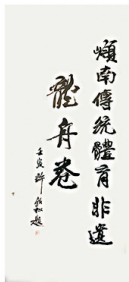 嶺南傳統體育非遺
龍舟卷
壬寅 穗松題